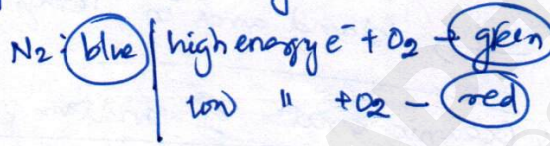 N2 : blue | high energy e⁻ + O2 → green
low " + O2 - red